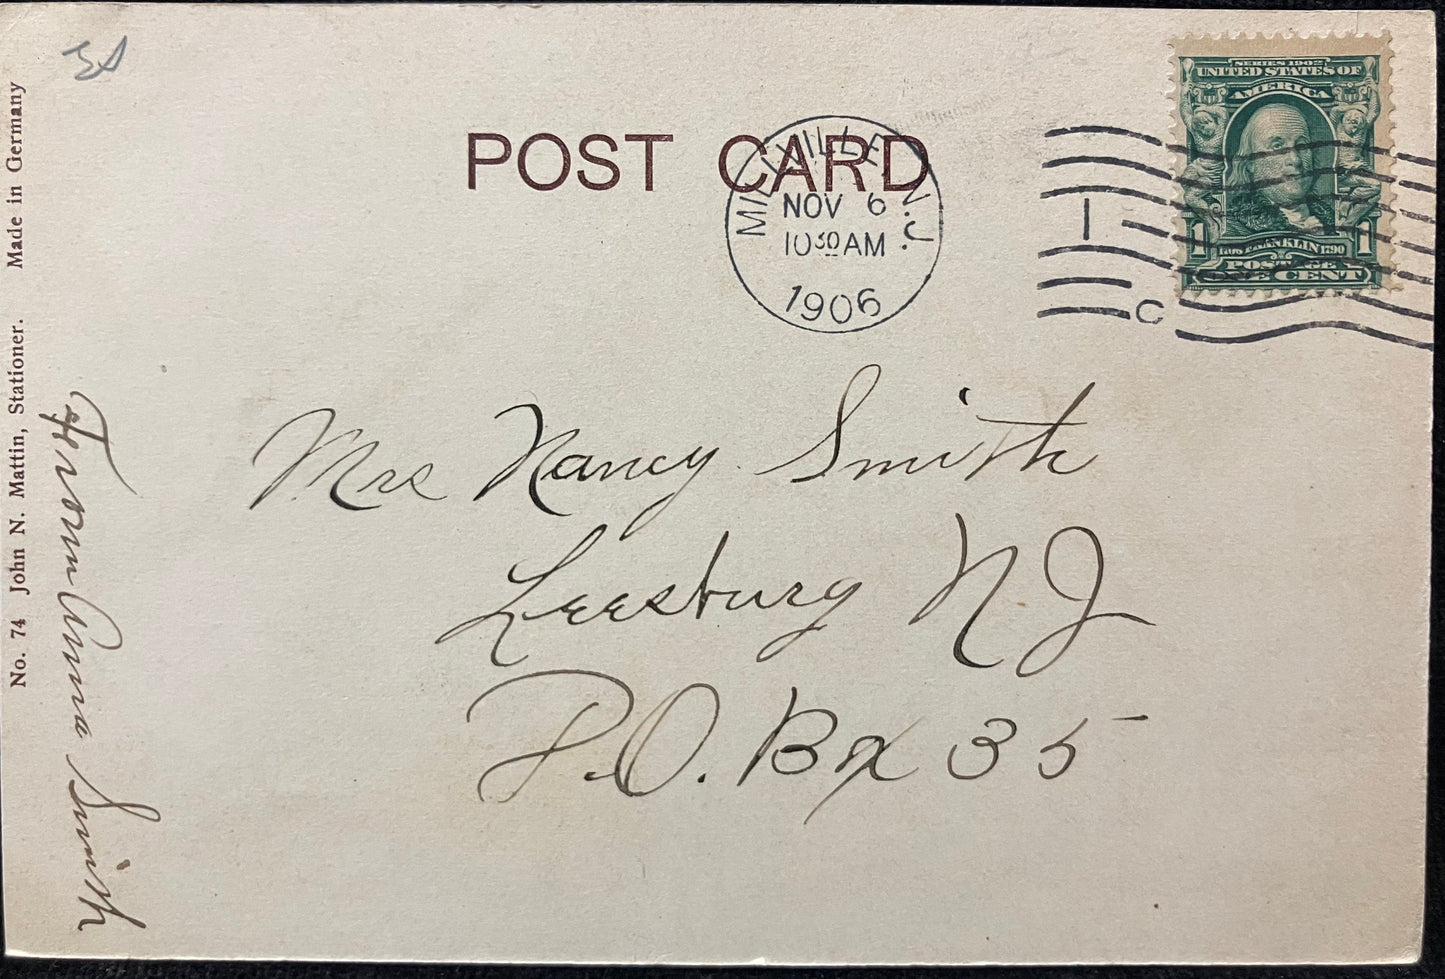 POST CARD
MILLVILLE N.J.
NOV 6
10 30 AM
1906
1
C
SERIES 1902
UNITED STATES OF
AMERICA
1 1
1706 FRANKLIN 1790
POSTAGE
ONE CENT
Mrs Nancy Smith
Leesburg N J
P.O. Bx 35
From Anna Smith
No. 74 John N. Mattin, Stationer. Made in Germany